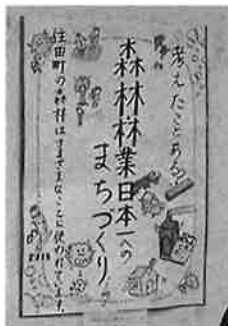 考えたことある?
森林林業日本一への
まちづくり
住田町の森林はさまざまなことに使われています。